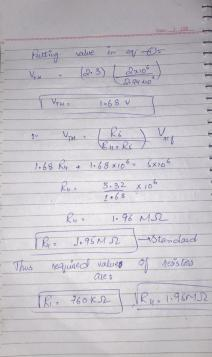 Putting value in eq
V_TH = (2.3) (2×10⁶ / 2.74×10⁶)
V_TH = 1.68 V
V_TH = (R6 / R4+R6) V_ref
1.68 R4 + 1.68×10⁶ = 5×10⁶
R4 = 3.32 ×10⁶ / 1.68
R4 = 1.96 MΩ
R4 = 1.95 MΩ → Standard
Thus required values of resistors
are:
R1 = 760KΩ R4 = 1.96MΩ